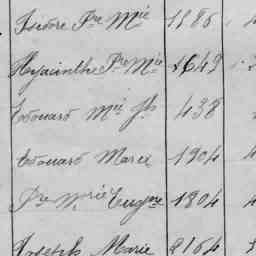 Isidore Pre Mie 1886
Hyacinthe Pre Mie 1649
Edouard Mie Jh 438
Edouard Marie 1904
Pre Marie Eugne 1804
Joseph Marie 2164